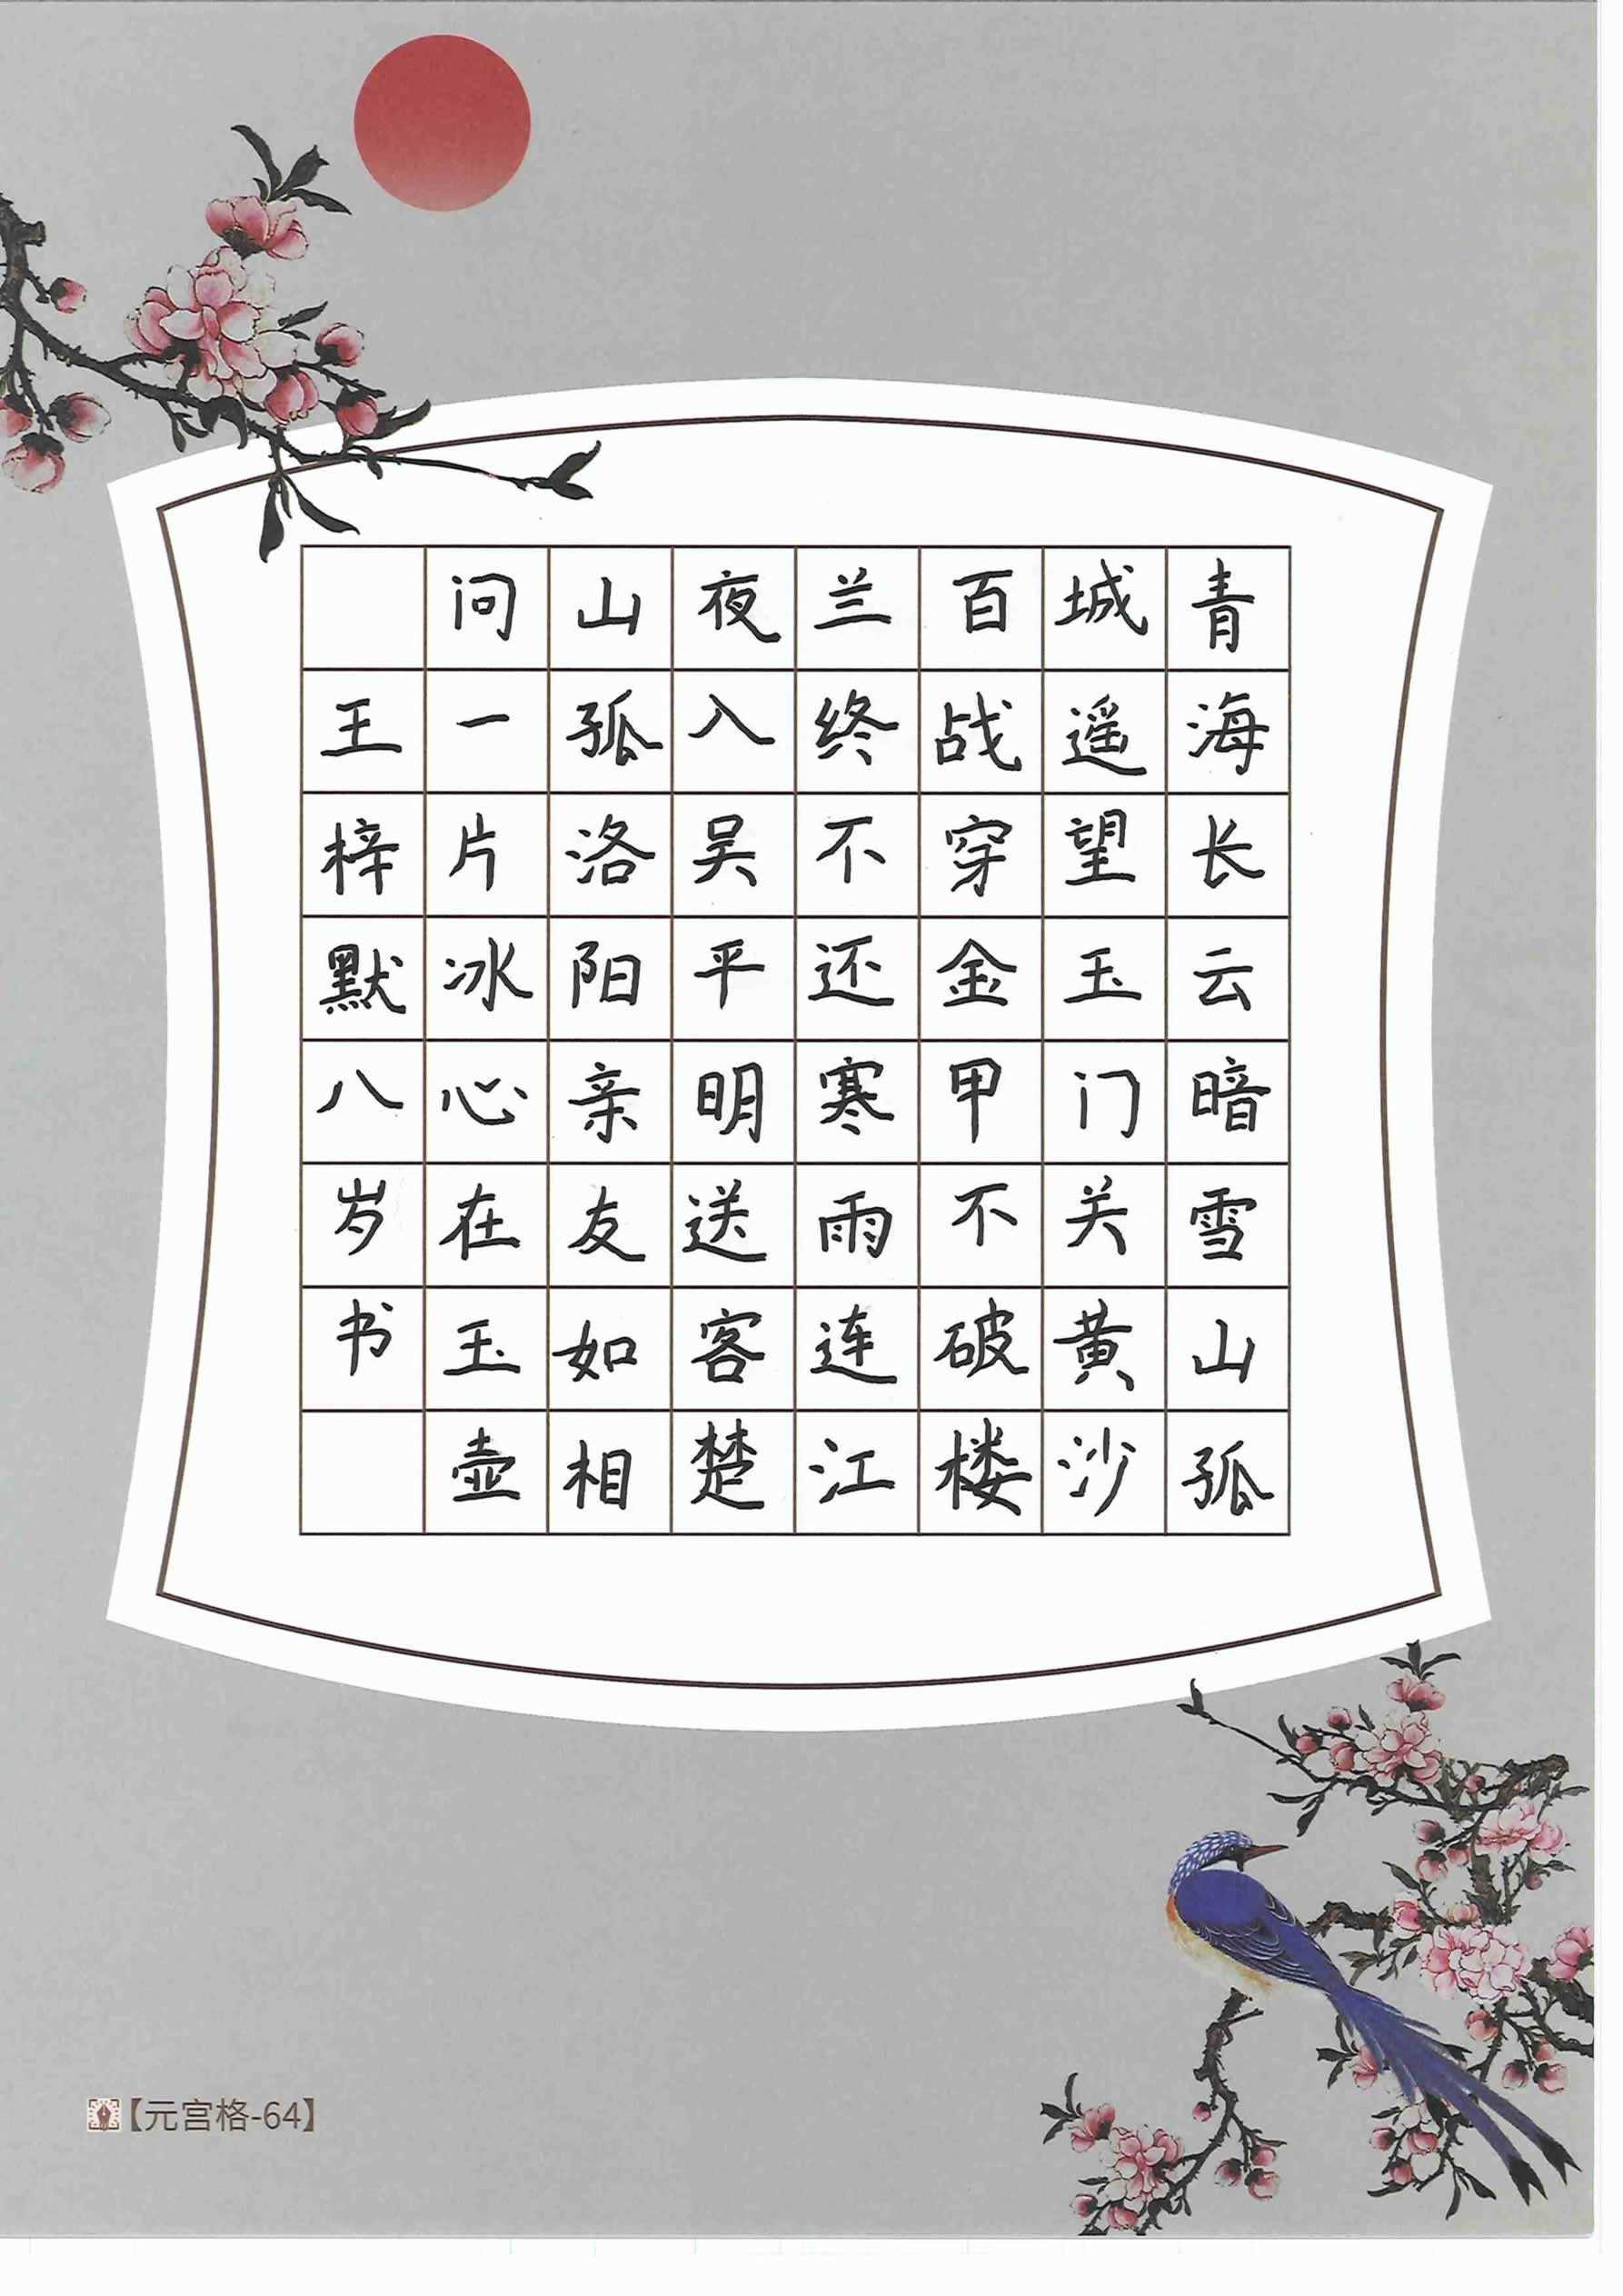 青海长云暗雪山孤
城遥望玉门关黄沙
百战穿金甲不破楼
兰终不还寒雨连江
夜入吴平明送客楚
山孤洛阳亲友如相
问一片冰心在玉壶
王梓默八岁书
【元宫格-64】